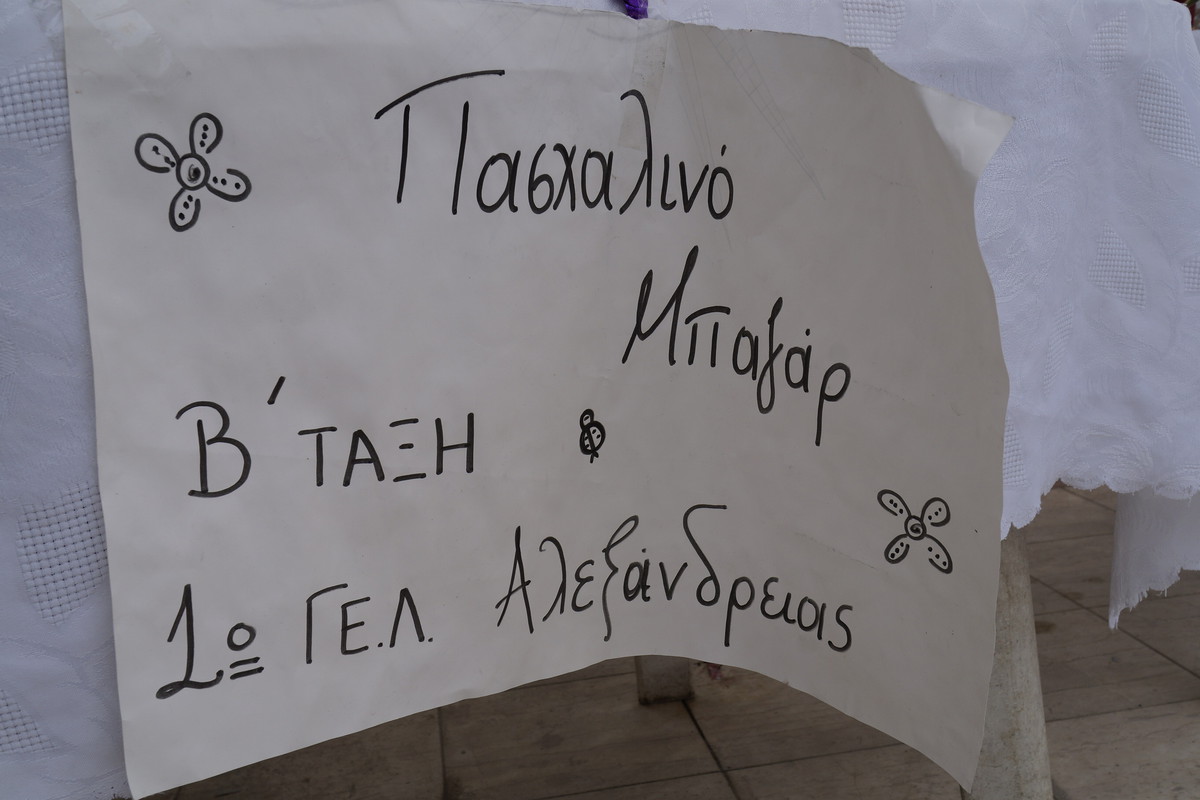 Πασχαλινό
Μπαζάρ
Β΄ ΤΑΞΗ
1ο ΓΕ.Λ. Αλεξάνδρειας